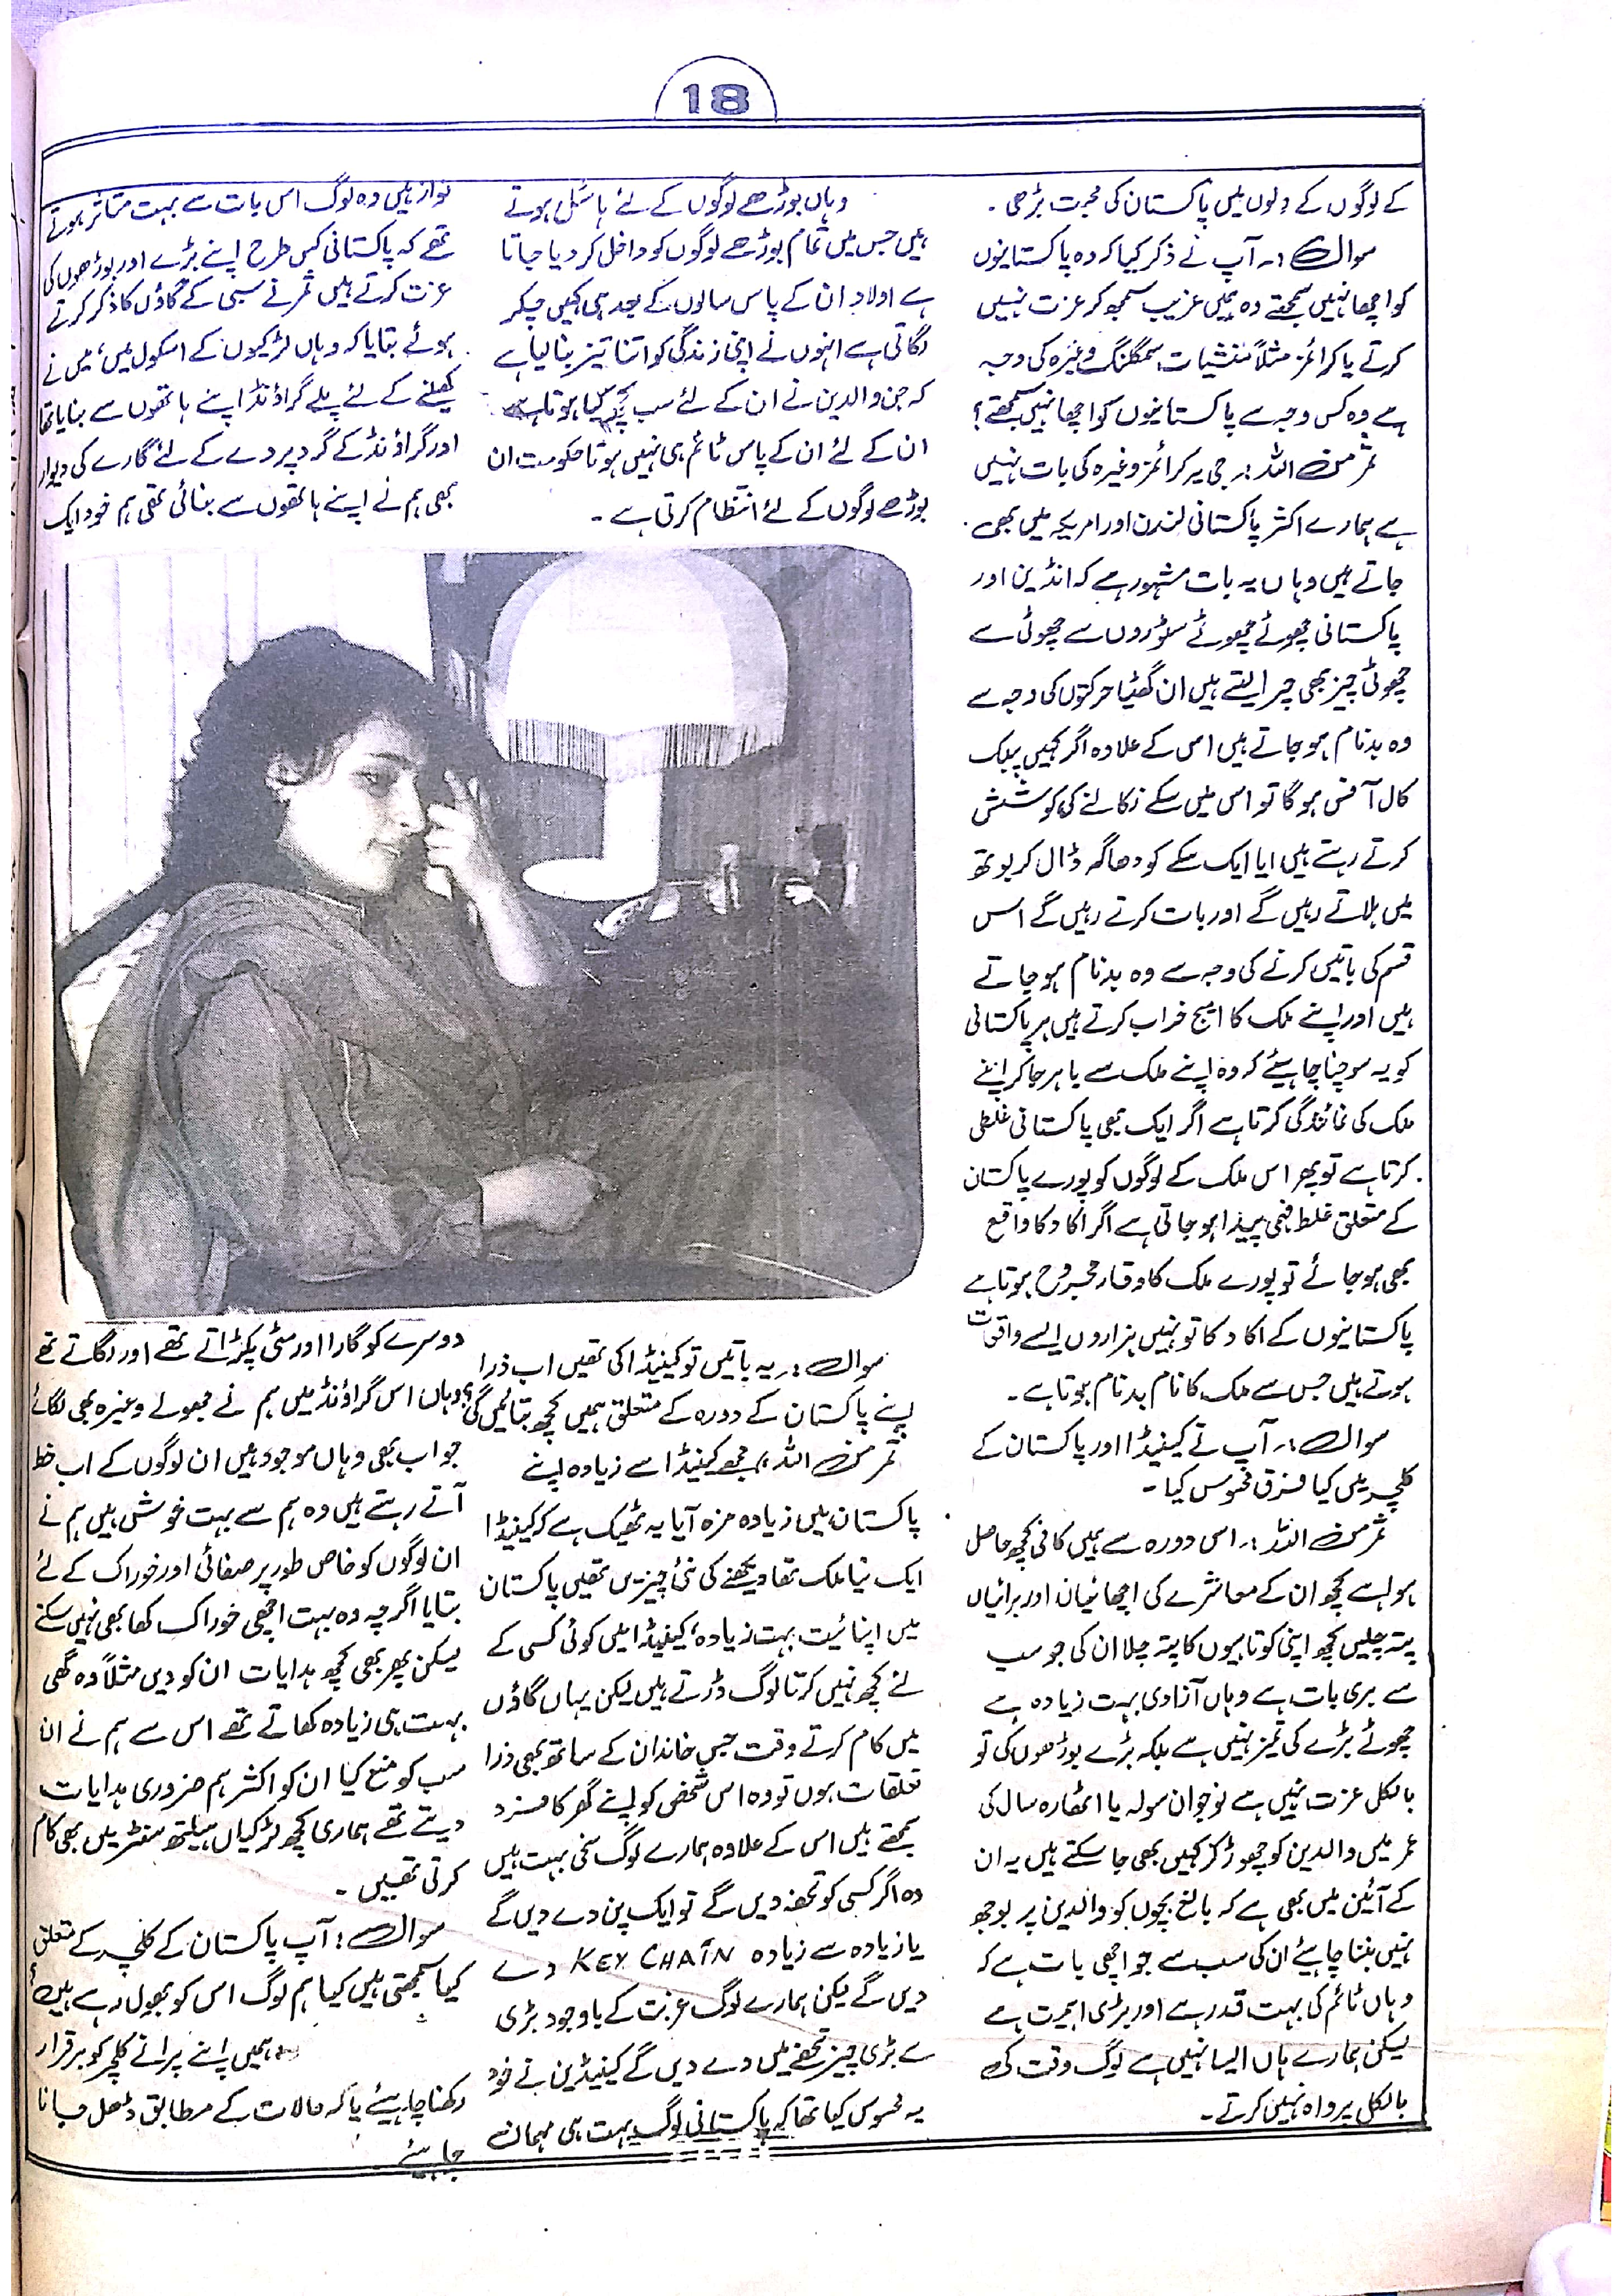 18
کے لوگوں کے دلوں میں پاکستان کی محبت بڑھی ۔
سوال :۔ آپ نے ذکر کیا کہ وہ پاکستانیوں
کو اچھا نہیں سمجھتے وہ ہمیں غریب سمجھ کر عزت نہیں
کرتے یا کرائمز مثلاً منشیات، سمگلنگ وغیرہ کی وجہ
سے وہ کس وجہ سے پاکستانیوں کو اچھا نہیں سمجھتے؟
ثمر من اللہ :۔ جی یہ کرائمز وغیرہ کی بات نہیں
ہے ہمارے اکثر پاکستانی لندن اور امریکہ میں بھی
جاتے ہیں وہاں یہ بات مشہور ہے کہ انڈین اور
پاکستانی چھوٹے چھوٹے سٹوروں سے چھوٹی سے
چھوٹی چیز بھی چرا لیتے ہیں ان گھٹیا حرکتوں کی وجہ سے
وہ بدنام ہو جاتے ہیں اس کے علاوہ اگر کہیں پبلک
کال آفس ہو گا تو اس میں سکے نکالنے کی کوشش
کرتے رہتے ہیں ایا ایک سکے کو دھاگہ ڈال کر بوتھ
میں ہلاتے رہیں گے اور بات کرتے رہیں گے اس
قسم کی باتیں کرنے کی وجہ سے وہ بدنام ہو جاتے
ہیں اور اپنے ملک کا امیج خراب کرتے ہیں ہر پاکستانی
کو یہ سوچنا چاہیئے کہ وہ اپنے ملک سے باہر جا کر اپنے
ملک کی نمائندگی کرتا ہے اگر ایک بھی پاکستانی غلطی
کرتا ہے تو پھر اس ملک کے لوگوں کو پورے پاکستان
کے متعلق غلط فہمی پیدا ہو جاتی ہے اگر اکا دکا واقع
بھی ہو جائے تو پورے ملک کا وقار مجروح ہوتا ہے
پاکستانیوں کے اکا دکا تو نہیں ہزاروں ایسے واقعات
ہوتے ہیں جس سے ملک کا نام بدنام ہوتا ہے ۔
سوال :۔ آپ نے کینیڈا اور پاکستان کے
کلچر میں کیا فرق محسوس کیا ۔
ثمر من اللہ :۔ اس دورہ سے ہمیں کافی کچھ حاصل
ہوا ہے کچھ ان کے معاشرے کی اچھائیاں اور برائیاں
پتہ چلیں کچھ اپنی کوتاہیوں کا پتہ چلا ان کی جو سب
سے بری بات ہے وہاں آزادی بہت زیادہ ہے
چھوٹے بڑے کی تمیز نہیں ہے بلکہ بڑے بوڑھوں کی تو
بالکل عزت نہیں ہے نوجوان سولہ یا اٹھارہ سال کی
عمر میں والدین کو چھوڑ کر کہیں بھی جا سکتے ہیں یہ ان
کے آئین میں بھی ہے کہ بالغ بچوں کو والدین پر بوجھ
نہیں بننا چاہیئے ان کی سب سے جو اچھی بات ہے کہ
وہاں ٹائم کی بہت قدر ہے اور بڑی اہمیت ہے
لیکن ہمارے ہاں ایسا نہیں ہے لوگ وقت کی
بالکل پرواہ نہیں کرتے ۔
وہاں بوڑھے لوگوں کے لئے ہاسٹل ہوتے
ہیں جس میں تمام بوڑھے لوگوں کو داخل کر دیا جاتا
ہے اولاد ان کے پاس سالوں کے بعد ہی کہیں چکر
لگاتی ہے انہوں نے اپنی زندگی کو اتنا تیز بنا لیا ہے
کہ جن والدین نے ان کے لئے سب کچھ کیا ہوتا ہے
ان کے لئے ان کے پاس ٹائم ہی نہیں ہوتا حکومت ان
بوڑھے لوگوں کے لئے انتظام کرتی ہے ۔
سوال :۔ یہ باتیں تو کینیڈا کی تھیں اب ذرا
اپنے پاکستان کے دورہ کے متعلق ہمیں کچھ بتائیں گی؟
ثمر من اللہ :۔ مجھے کینیڈا سے زیادہ اپنے
پاکستان میں زیادہ مزہ آیا یہ ٹھیک ہے کہ کینیڈا
ایک نیا ملک تھا دیکھنے کی نئی چیزیں تھیں پاکستان
میں اپنائیت بہت زیادہ، کینیڈا میں کوئی کسی کے
لئے کچھ نہیں کرتا لوگ ڈرتے ہیں لیکن یہاں گاؤں
میں کام کرتے وقت جس خاندان کے ساتھ بھی ذرا
تعلقات ہوں تو وہ اس شخص کو اپنے گھر کا فرد
سمجھتے ہیں اس کے علاوہ ہمارے لوگ سخی بہت ہیں
وہ اگر کسی کو تحفہ دیں گے تو ایک پن دے دیں گے
یا زیادہ سے زیادہ KEY CHAIN دے
دیں گے لیکن ہمارے لوگ غربت کے باوجود بڑی
سے بڑی چیز تحفے میں دے دیں گے کینیڈین نے خود
یہ محسوس کیا تھا کہ پاکستانی لوگ بہت ہی مہمان
نواز ہیں وہ لوگ اس بات سے بہت متاثر ہوتے
تھے کہ پاکستانی کس طرح اپنے بڑے اور بوڑھوں کی
عزت کرتے ہیں ثمر نے سبی کے گاؤں کا ذکر کرتے
ہوئے بتایا کہ وہاں لڑکیوں کے اسکول میں، میں نے
کھیلنے کے لئے پلے گراؤنڈ اپنے ہاتھوں سے بنایا تھا
اور گراؤنڈ کے گرد پردے کے لئے گارے کی دیوار
بھی ہم نے اپنے ہاتھوں سے بنائی تھی ہم خود ایک
دوسرے کو گارا اور مٹی پکڑاتے تھے اور لگاتے تھے
وہاں اس گراؤنڈ میں ہم نے جھولے وغیرہ بھی لگائے
جو اب بھی وہاں موجود ہیں ان لوگوں کے اب خط
آتے رہتے ہیں وہ ہم سے بہت خوش ہیں ہم نے
ان لوگوں کو خاص طور پر صفائی اور خوراک کے لئے
بتایا اگرچہ وہ بہت اچھی خوراک کھا بھی نہیں سکتے
لیکن پھر بھی کچھ ہدایات ان کو دیں مثلاً وہ گھی
بہت ہی زیادہ کھاتے تھے اس سے ہم نے ان
سب کو منع کیا ان کو اکثر ہم ضروری ہدایات
دیتے تھے ہماری کچھ لڑکیاں ہیلتھ سنٹر میں بھی کام
کرتی تھیں ۔
سوال : آپ پاکستان کے کلچر کے متعلق
کیا سمجھتی ہیں کیا ہم لوگ اس کو بھول رہے ہیں؟
ہمیں اپنے پرانے کلچر کو برقرار
رکھنا چاہیئے یا کہ حالات کے مطابق ڈھل جانا
چاہیئے